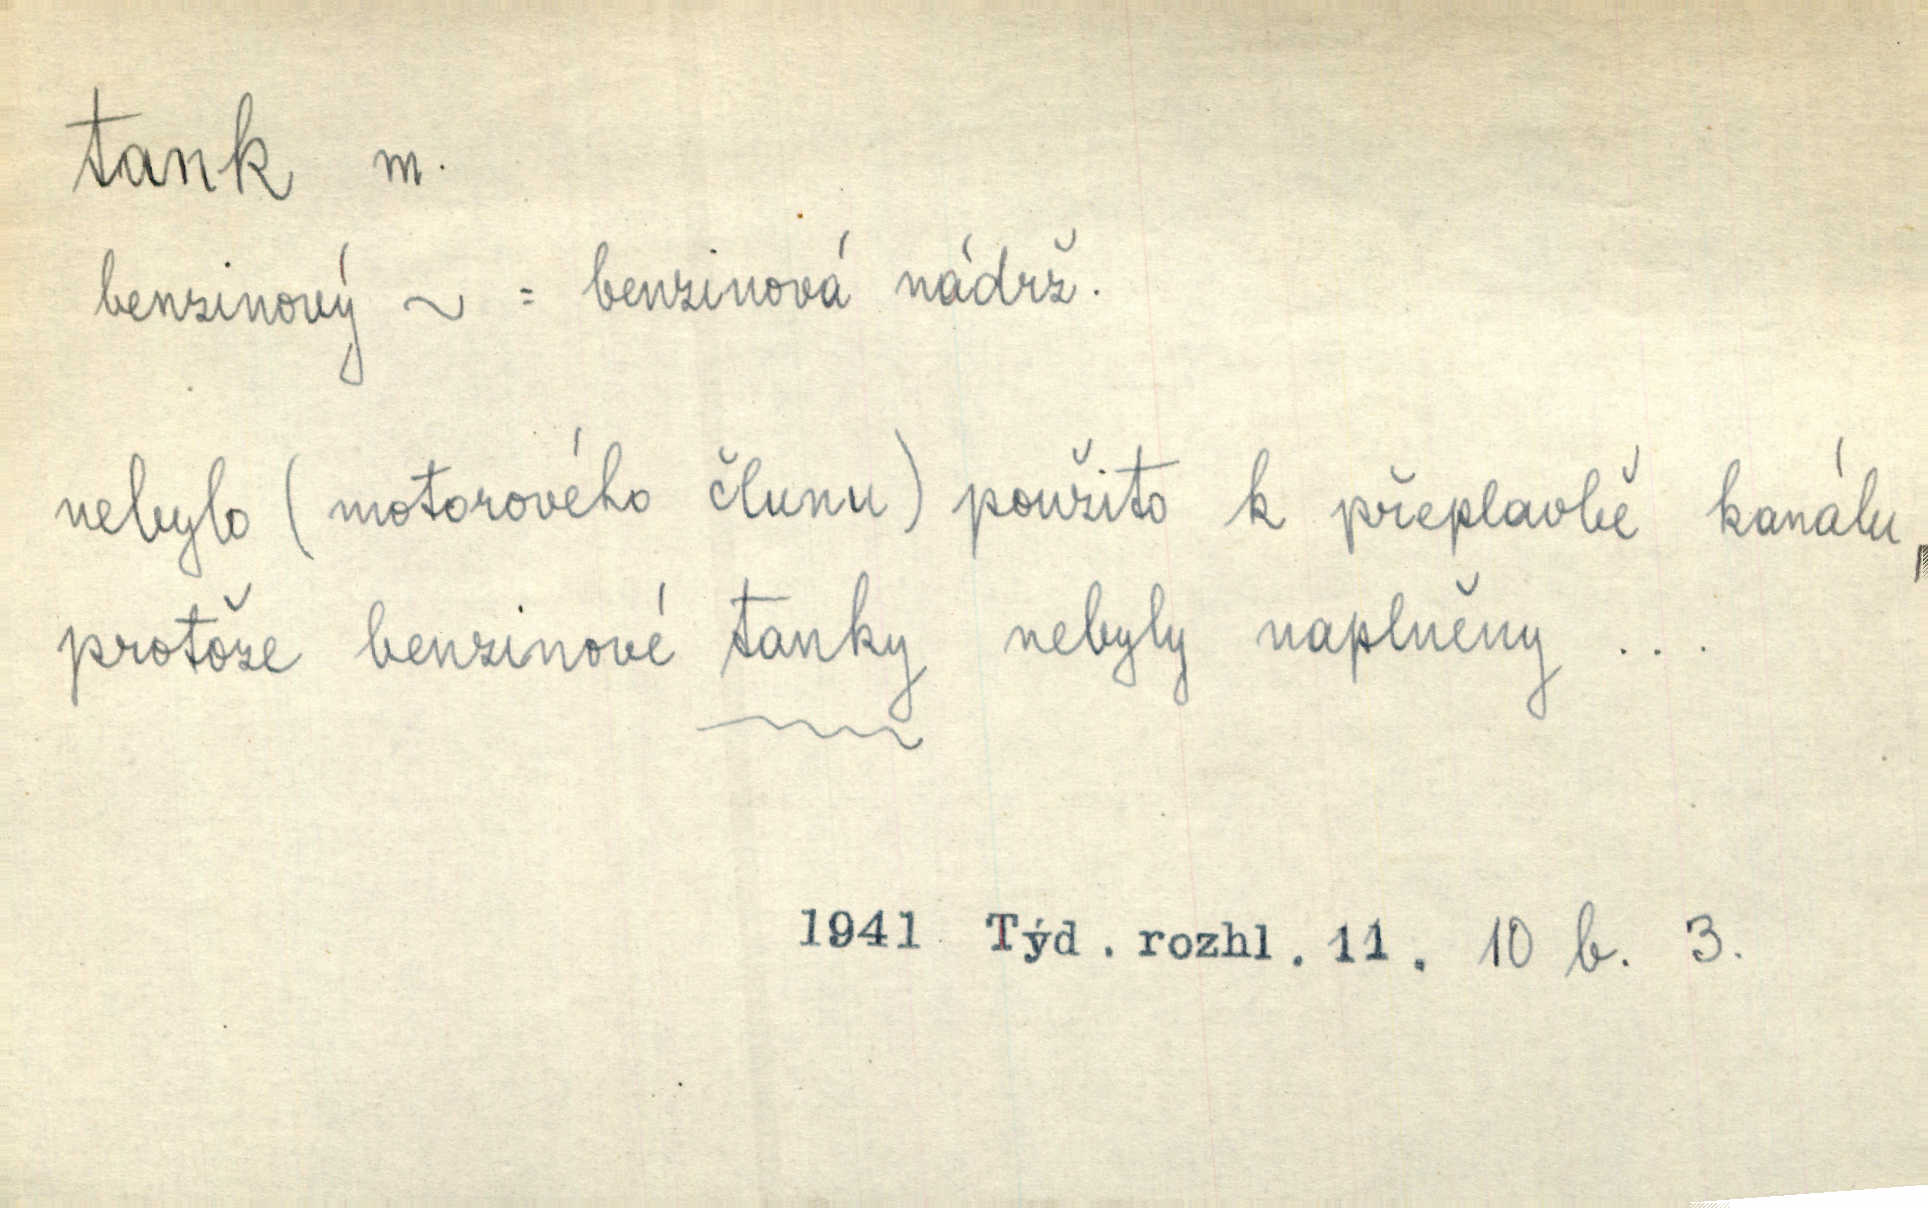 tank m.
benzinový ~ = benzinová nádrž.
nebylo (motorového člunu) použito k přeplavbě kanálu,
protože benzinové tanky nebyly naplněny ...
1941 Týd. rozhl. 11. 10 b. 3.